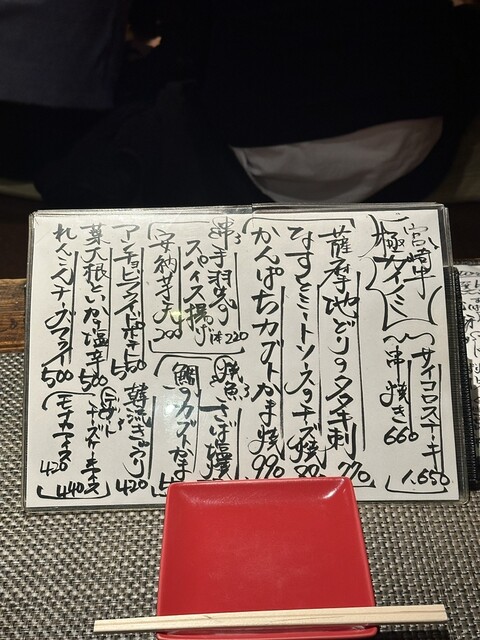 宮崎牛
極ウマイ〜
〜サイコロステーキ 1,650
〜串焼き 660
薩摩地どりのタタキ刺 770
なすとミートソースのチーズ焼
かんぱちカブトかま焼 990
手羽先の
スパイス揚げ 1本 220
安納芋天 500
焼魚
さば
のカブトかま
アンチョビフライポテト 550
韓流きゅうり 420
葉大根といか塩辛 500
チーズケーキ 440
れんこんチーズフライ 500
モナカアイス 420